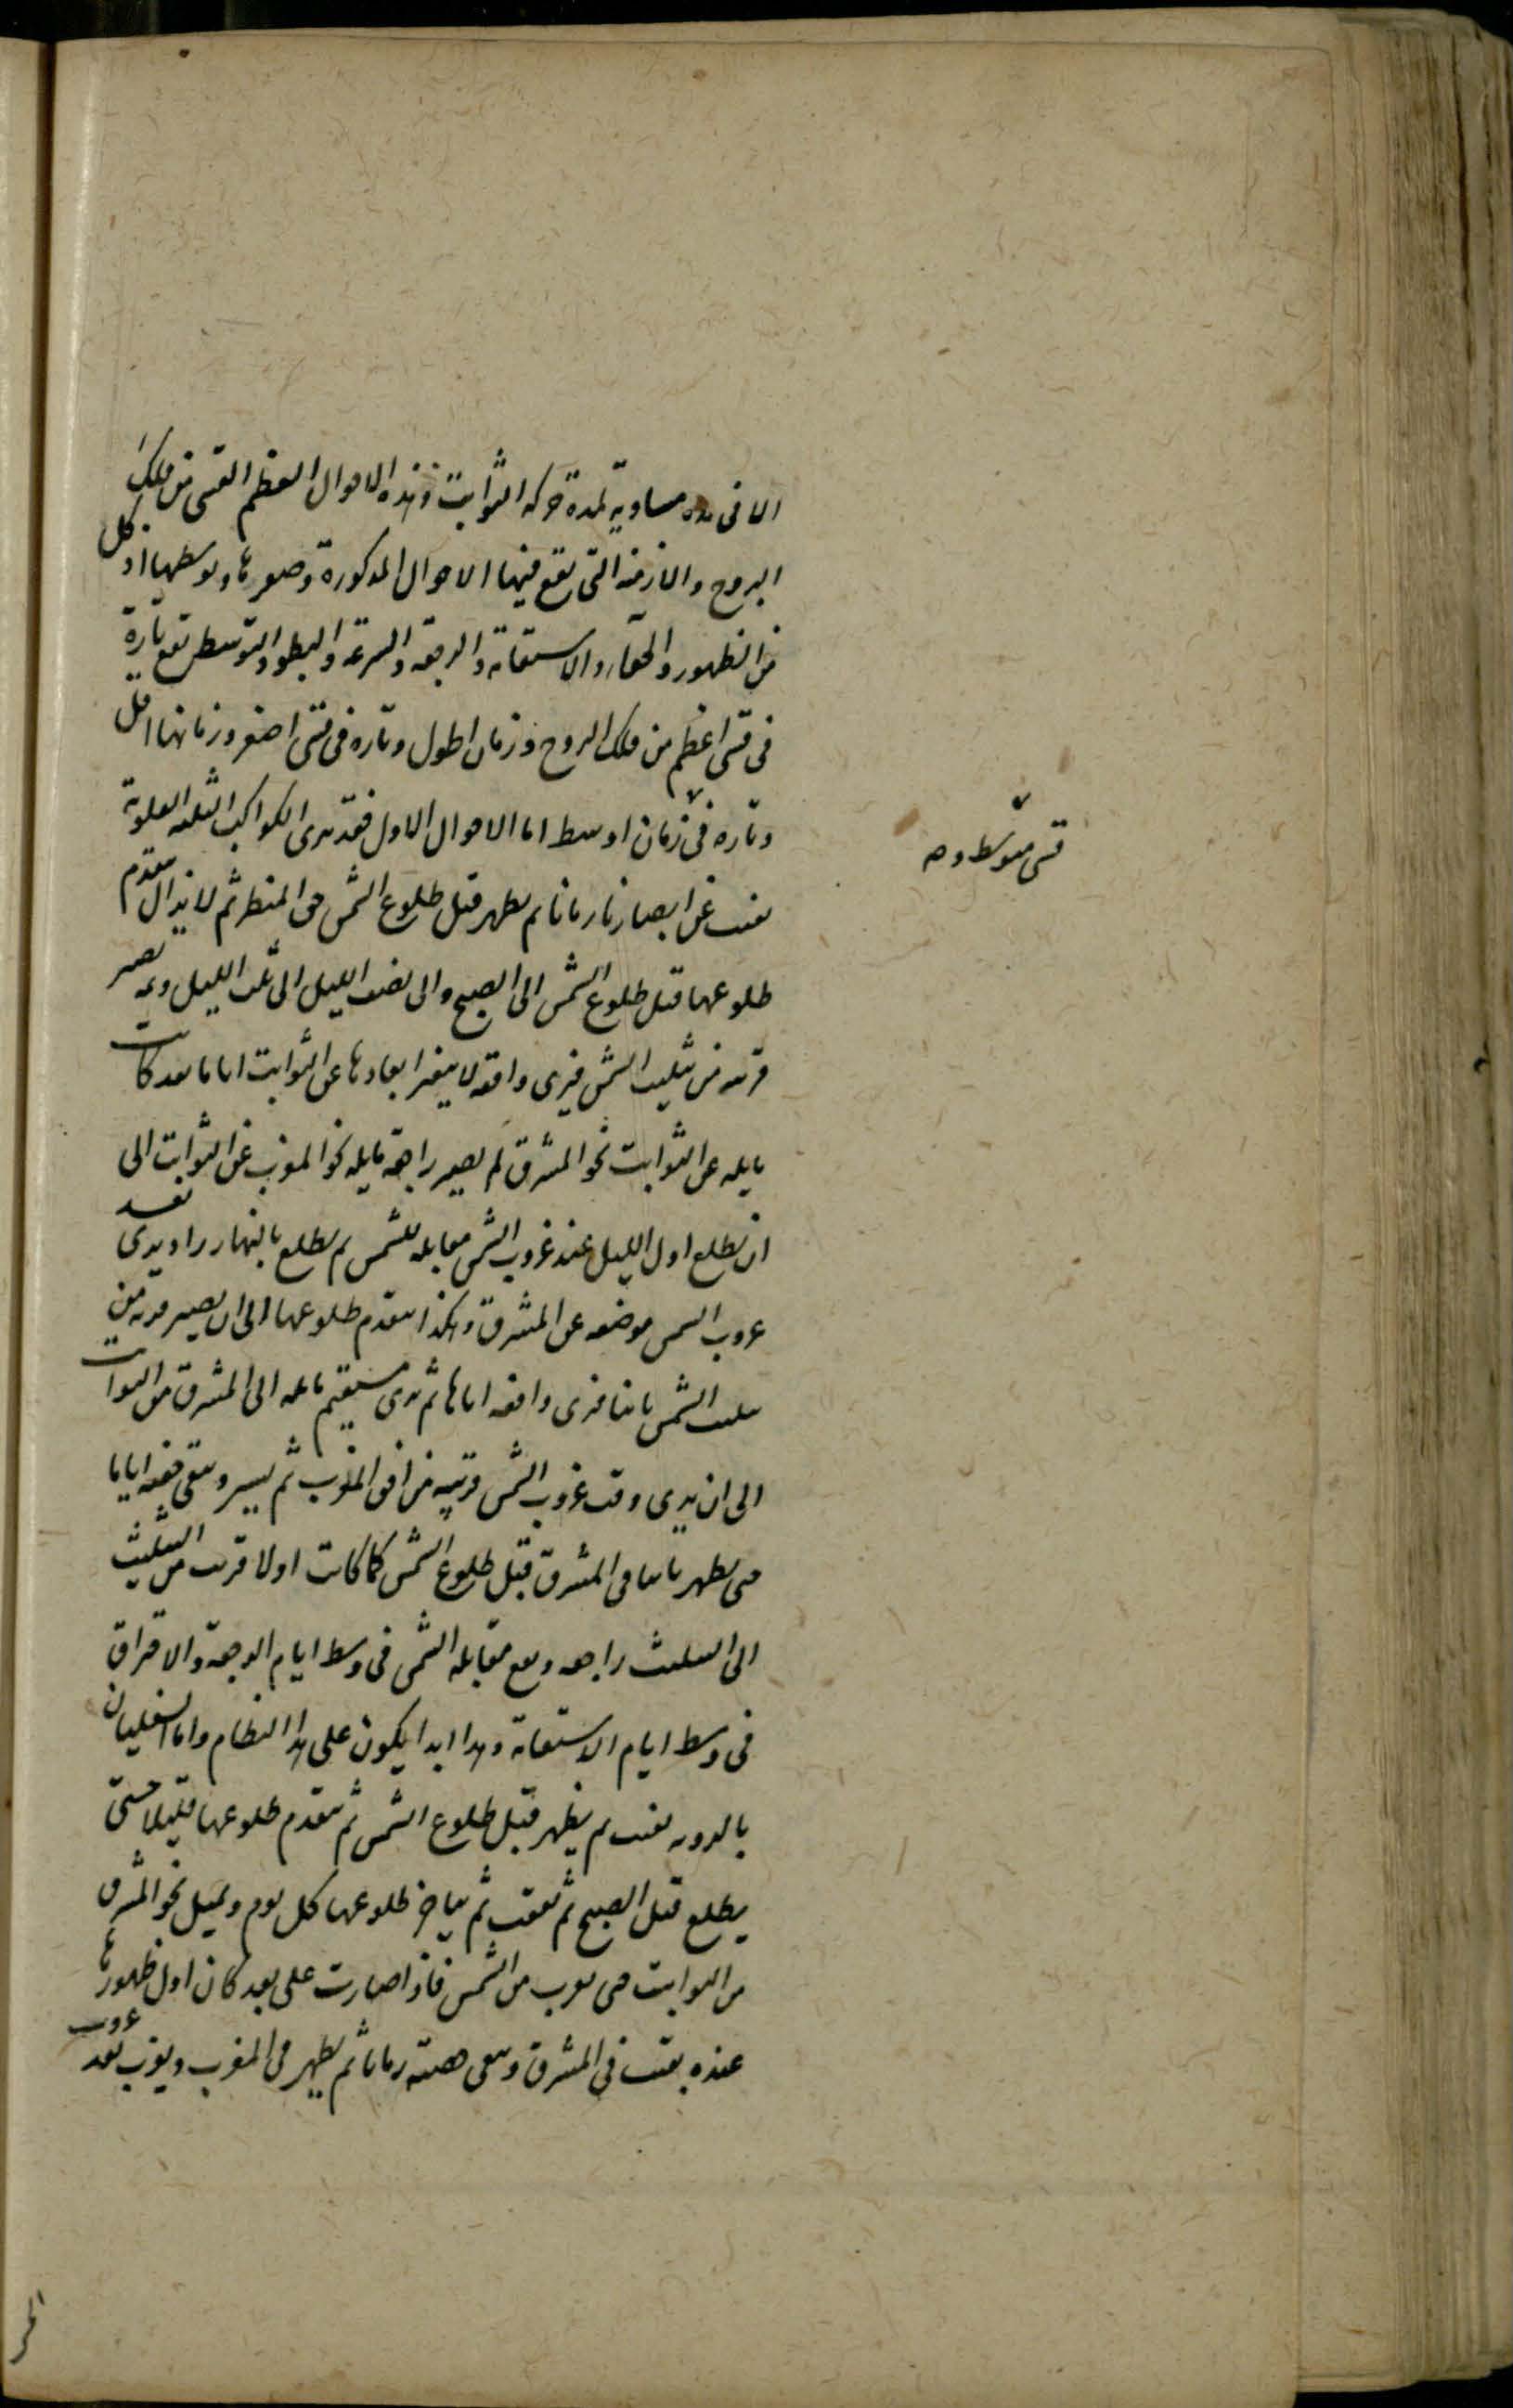 الا فى مده مساوية لمدة حركه الثوابت وهذه الاحوال العظم القسى من فلك
البروج والازمنه التى يقع فيها الاحوال المذكورة وصغرها وتوسطها اذ كل
من الظهور والخفاء والاستقامة والرجعه والسرعة والبطو والتوسط يقع تارة
فى قسى اعظم من فلك البروج وزمان اطول وتاره فى قسى اصغر وزمانها اقل
وتاره فى زمان اوسط اما الاحوال الاول فقد ترى الكواكب الثلثه العلوية
قسى متوسطه و صح
تغيب عن ابصارنا زمانا ثم يظهر قبل طلوع الشمس فى المنظر ثم لا يزال يتقدم
طلوعها قبل طلوع الشمس الى الصبح والى نصف الليل الى ثلث الليل وثم يصير
قريبه من تثليث الشمس فيرى واقفه لا يتغير ابعادها عن الثوابت اياما بعد كانت
مايله عن الثوابت نحو المشرق ثم يصير راجعة مايله نحو المغرب عن الثوابت الى
ان يطلع اول الليل عند غروب الشمس مقابله للشمس ثم يطلع بالنهار ويرى بعد
غروب الشمس مرتفعه عن المشرق وهكذا يتقدم طلوعها الى ان يصير قريبه من
تثليث الشمس ثانيا فترى واقفه اياما ثم ترى مستقيم مايله الى المشرق من الثوابت
الى ان يرى وقت غروب الشمس قريبه من افق المغرب ثم يسير ويبقى خفيه اياما
حتى يظهر ثانيا فى المشرق قبل طلوع الشمس كما كانت اولا قريب من التثليث
الى التثليث راجعه ويقع مقابله الشمس فى وسط ايام الرجعة والاقتران
فى وسط ايام الاستقامة وهذا ابدا يكون على هذا النظام واما السفليان
بالدويه تغيب ثم يظهر قبل طلوع الشمس ثم يتقدم طلوعها قليلا حتى
يطلع قبل الصبح ثم تقف ثم يتاخر طلوعها كل يوم ويميل نحو المشرق
من الثوابت حتى يقرب من الشمس فاذا صارت على بعد كان اول ظهورها
عنده يغيب فى المشرق ويبقى خفيه زمانا ثم يظهر فى المغرب ويغرب بعد غروب